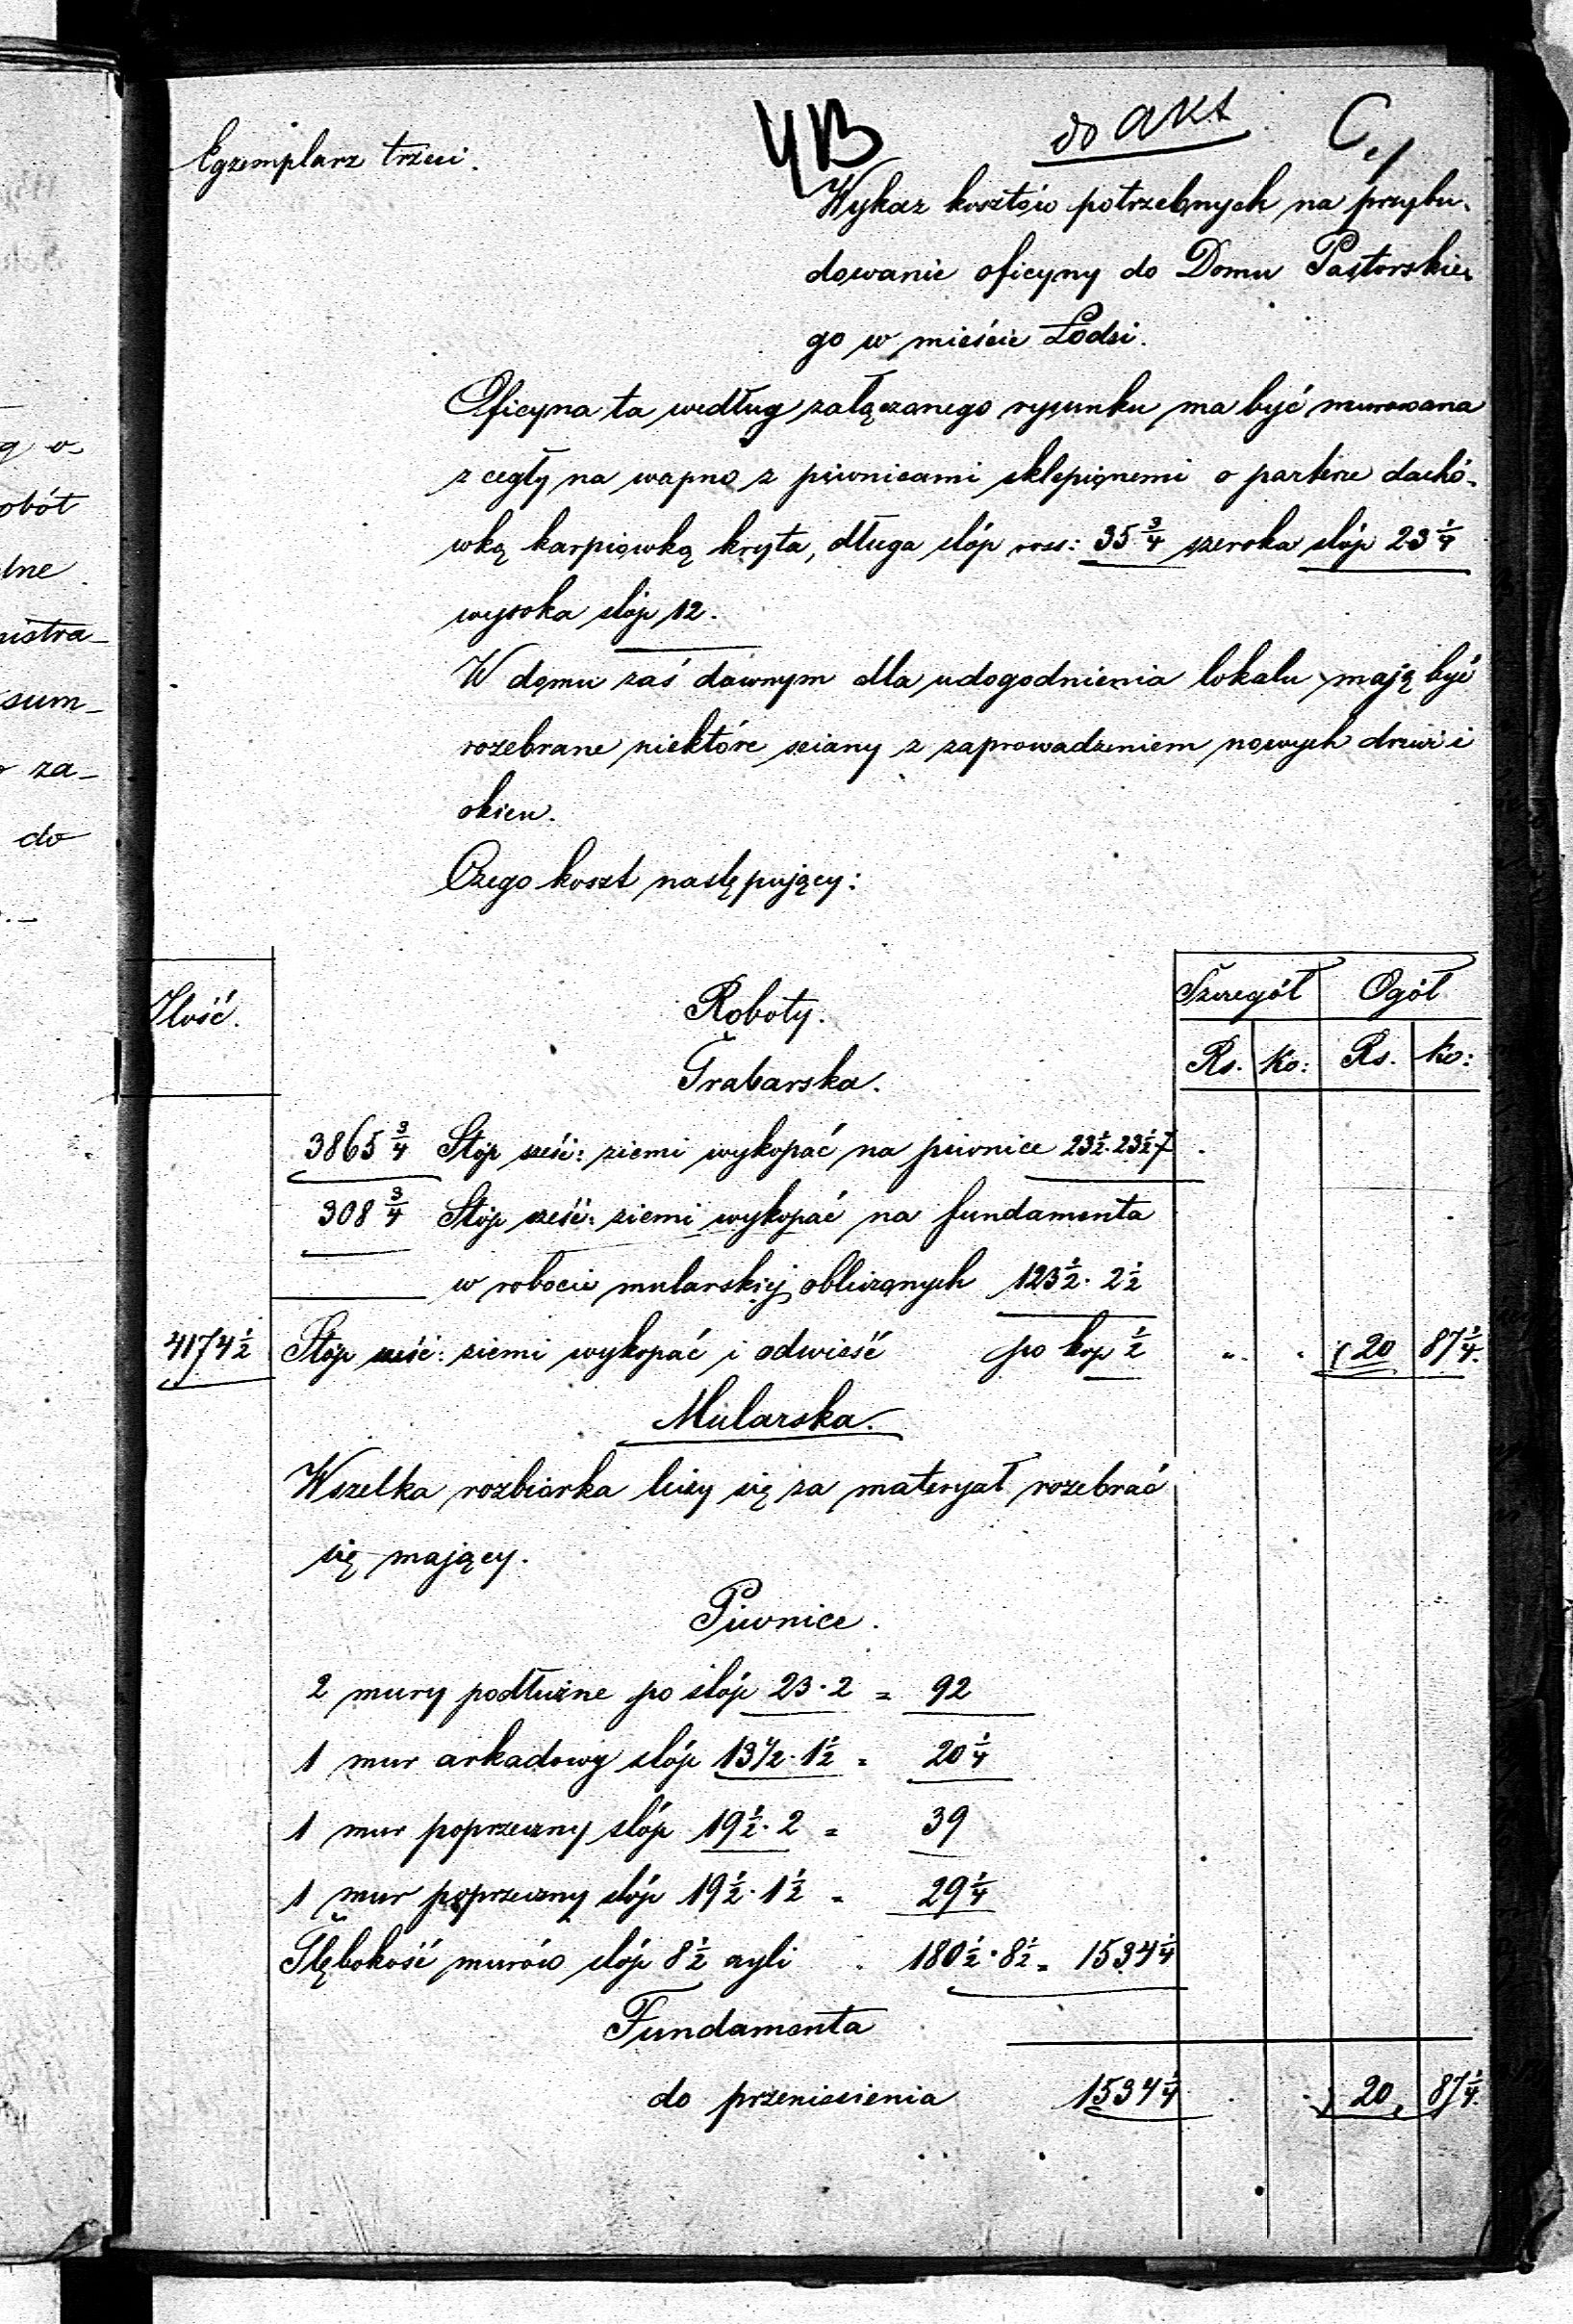 g o-
obót
lne
nistra-
sum-
za-
do
Egzemplarz trzeci.
YB
do akt
C.
Wykaz kosztów potrzebnych na przybu-
dowanie oficyny do Domu Pastorskie-
go w mieście Łodzi.
Oficyna ta według załączonego rysunku ma być murowana
z cegły na wapno z piwnicami sklepionemi o parterze dachó-
wką karpiówką kryta, długa stóp ross: 35 3/4 szeroka stóp 23 1/4
wysoka stóp 12.
W domu zaś dawnym dla udogodnienia lokalu mają być
rozebrane niektóre sciany z zaprowadzeniem nowych drzwi i
okien.
Czego koszt następujący:
Ilość. Roboty. Szczegół Ogół
Rs. Ko: Rs. Ko:
Grabarska.
3865 3/4 Stóp sześć: ziemi wykopać na piwnice 23 1/2 · 23 1/2 · 7
308 3/4 Stóp sześć: ziemi wykopać na fundamenta
w robocie mularskiej obliczonych 123 1/2 · 2 1/2
4174 1/2 Stóp sześć: ziemi wykopać i odwieść po kop 1/2 " 20 87 1/4.
Mularska.
Wszelka rozbiórka liczy się za materyał rozebrać
się mający.
Piwnice.
2 mury podłużne po stóp 23 · 2 = 92
1 mur arkadowy stóp 13 1/2 · 1 1/2 = 20 1/4
1 mur poprzeczny stóp 19 1/2 · 2 = 39
1 mur poprzeczny stóp 19 1/2 · 1 1/2 = 29 1/4
Głębokość murów stóp 8 1/2 czyli 180 1/2 · 8 1/2 = 1534 1/4
Fundamenta
do przeniesienia 1534 1/4 20 87 1/4.